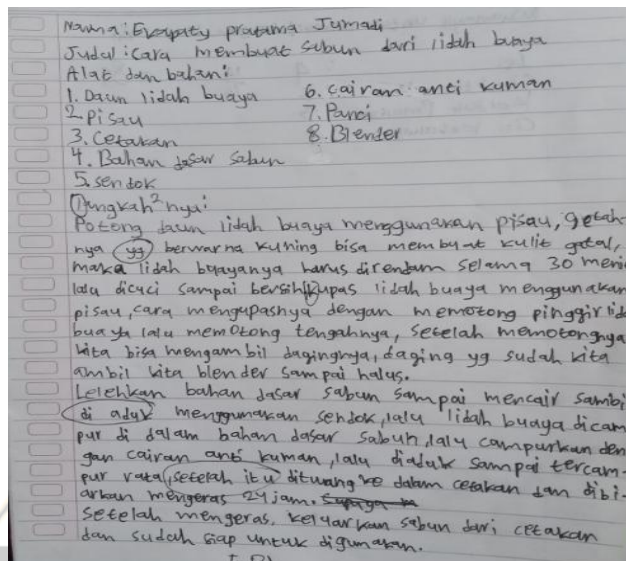 Nama: Evapaty pratama Jumadi
Judul: Cara membuat sabun dari lidah buaya
Alat dan bahan:
1. Daun lidah buaya 6. cairan anti kuman
2. Pisau 7. Panci
3. Cetakan 8. Blender
4. Bahan dasar sabun
5. sendok
Langkah² nya:
Potong daun lidah buaya menggunakan pisau, getah
nya yg berwarna kuning bisa membuat kulit gatal,
maka lidah buayanya harus direndam selama 30 meni
lalu dicuci sampai bersih kupas lidah buaya menggunakan
pisau, cara mengupasnya dengan memotong pinggir lid
buaya lalu memotong tengahnya, setelah memotongnya
kita bisa mengambil dagingnya, daging yg sudah kita
ambil kita blender sampai halus.
Lelehkan bahan dasar sabun sampai mencair sambi
di aduk menggunakan sendok, lalu lidah buaya dicam
pur di dalam bahan dasar sabun, lalu campurkan den
gan cairan anti kuman, lalu diaduk sampai tercam-
pur rata, setelah itu dituang ke dalam cetakan dan dibi-
arkan mengeras 24 jam.
setelah mengeras, keluarkan sabun dari cetakan
dan sudah siap untuk digunakan.